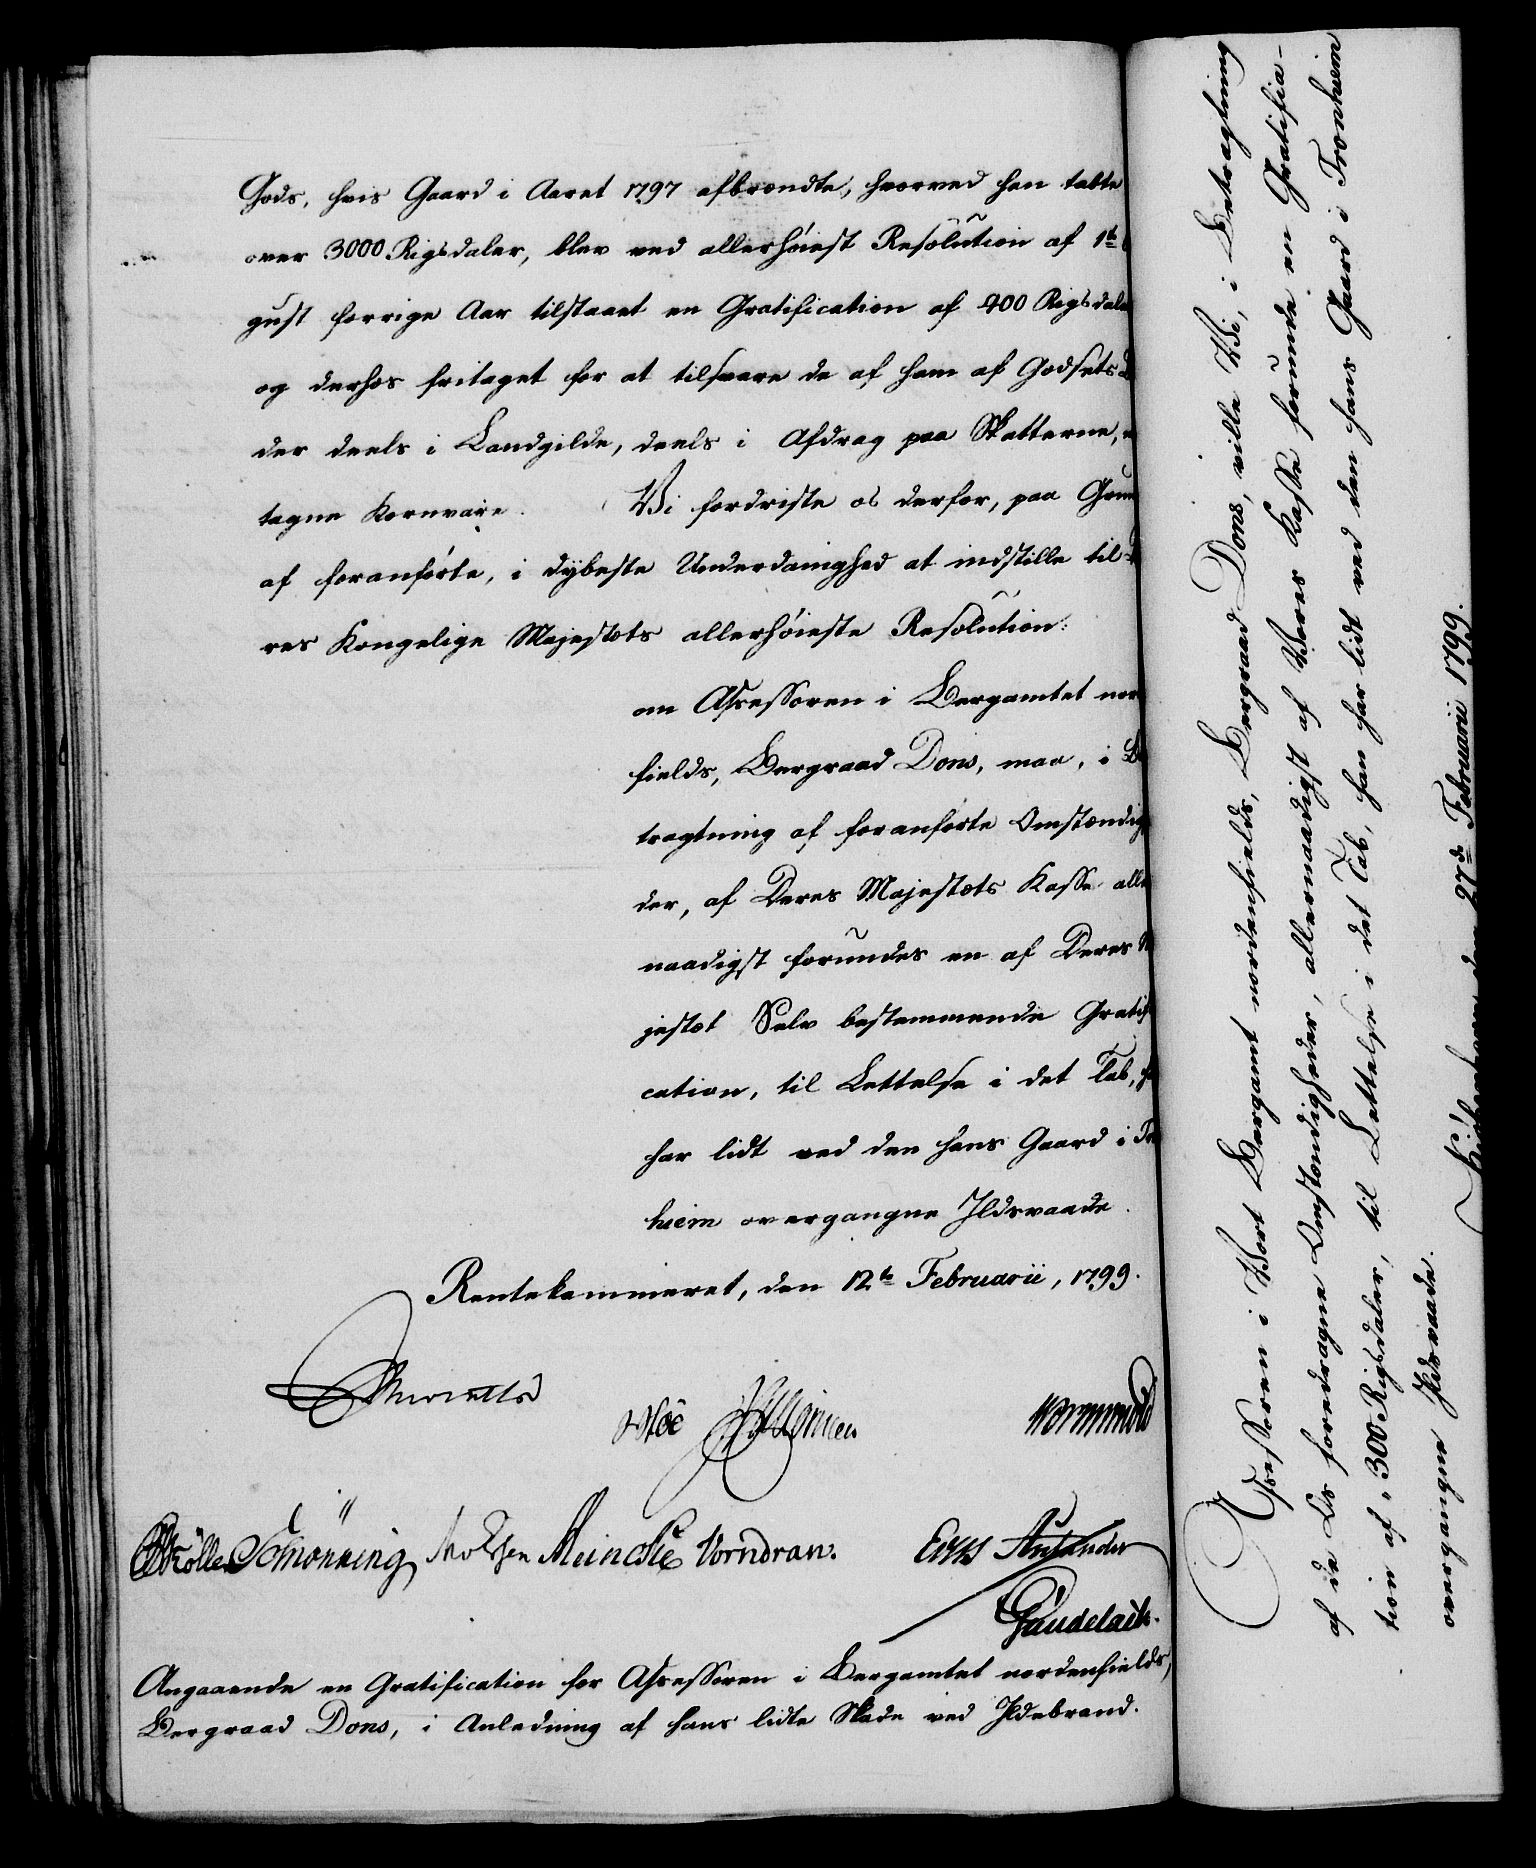 Gods, hvis Gaard i Aaret 1797 afbrændte, hvorved han tabte
over 3000 Rigsdaler, blev ved allerhöiest Resolution af 1ste
gust forrige Aar tilstaaet en Gratification af 400 Rigsdaler
og derhos fritaget for at tilsvare de af ham af Godsets
der deels i Landgilde, deels i Afdrag paa Skatterne,
tagne Kornvare. Vi fordriste os derfor, paa Grun
af foranförte, i dybeste Underdanighed at indstille til
res Kongelige Majestæts allerhöieste Resolution:
om Assessoren i Bergamtet nor
fields, Bergraad Dons, maa, i Be
tragtning af foranförte Omstændig
der, af Deres Majestæts Kasse aller
naadigst forundes en af Deres Ma
jestæt Selv bestemmende Gratifi
cation, til Lettelse i det Tab, ha
har lidt ved den hans Gaard i Tr
hiem overgangne Ildsvaade.
Rentekammeret, den 12te Februarii, 1799.
Wormskiold
Schönning Meincke Vorndran.
Angaaende en Gratification for Assessoren i Bergamtet nordenfields,
Bergraad Dons, i Anledning af hans lidte Skade ved Ildebrand.
Assessoren i Vort Bergamt nordenfields, Bergraad Dons, ville Vi, i Betragtning
af de Os foredragne Omstændigheder, allernaadigst af Vores Kasse forunde en Gratifica-
tion af 300 Rigsdaler, til Lettelse i det Tab, han har lidt ved den hans Gaard i Tronhiem
overgangne Ildsvaade.
Kiöbenhavn den 27de Februarii 1799.